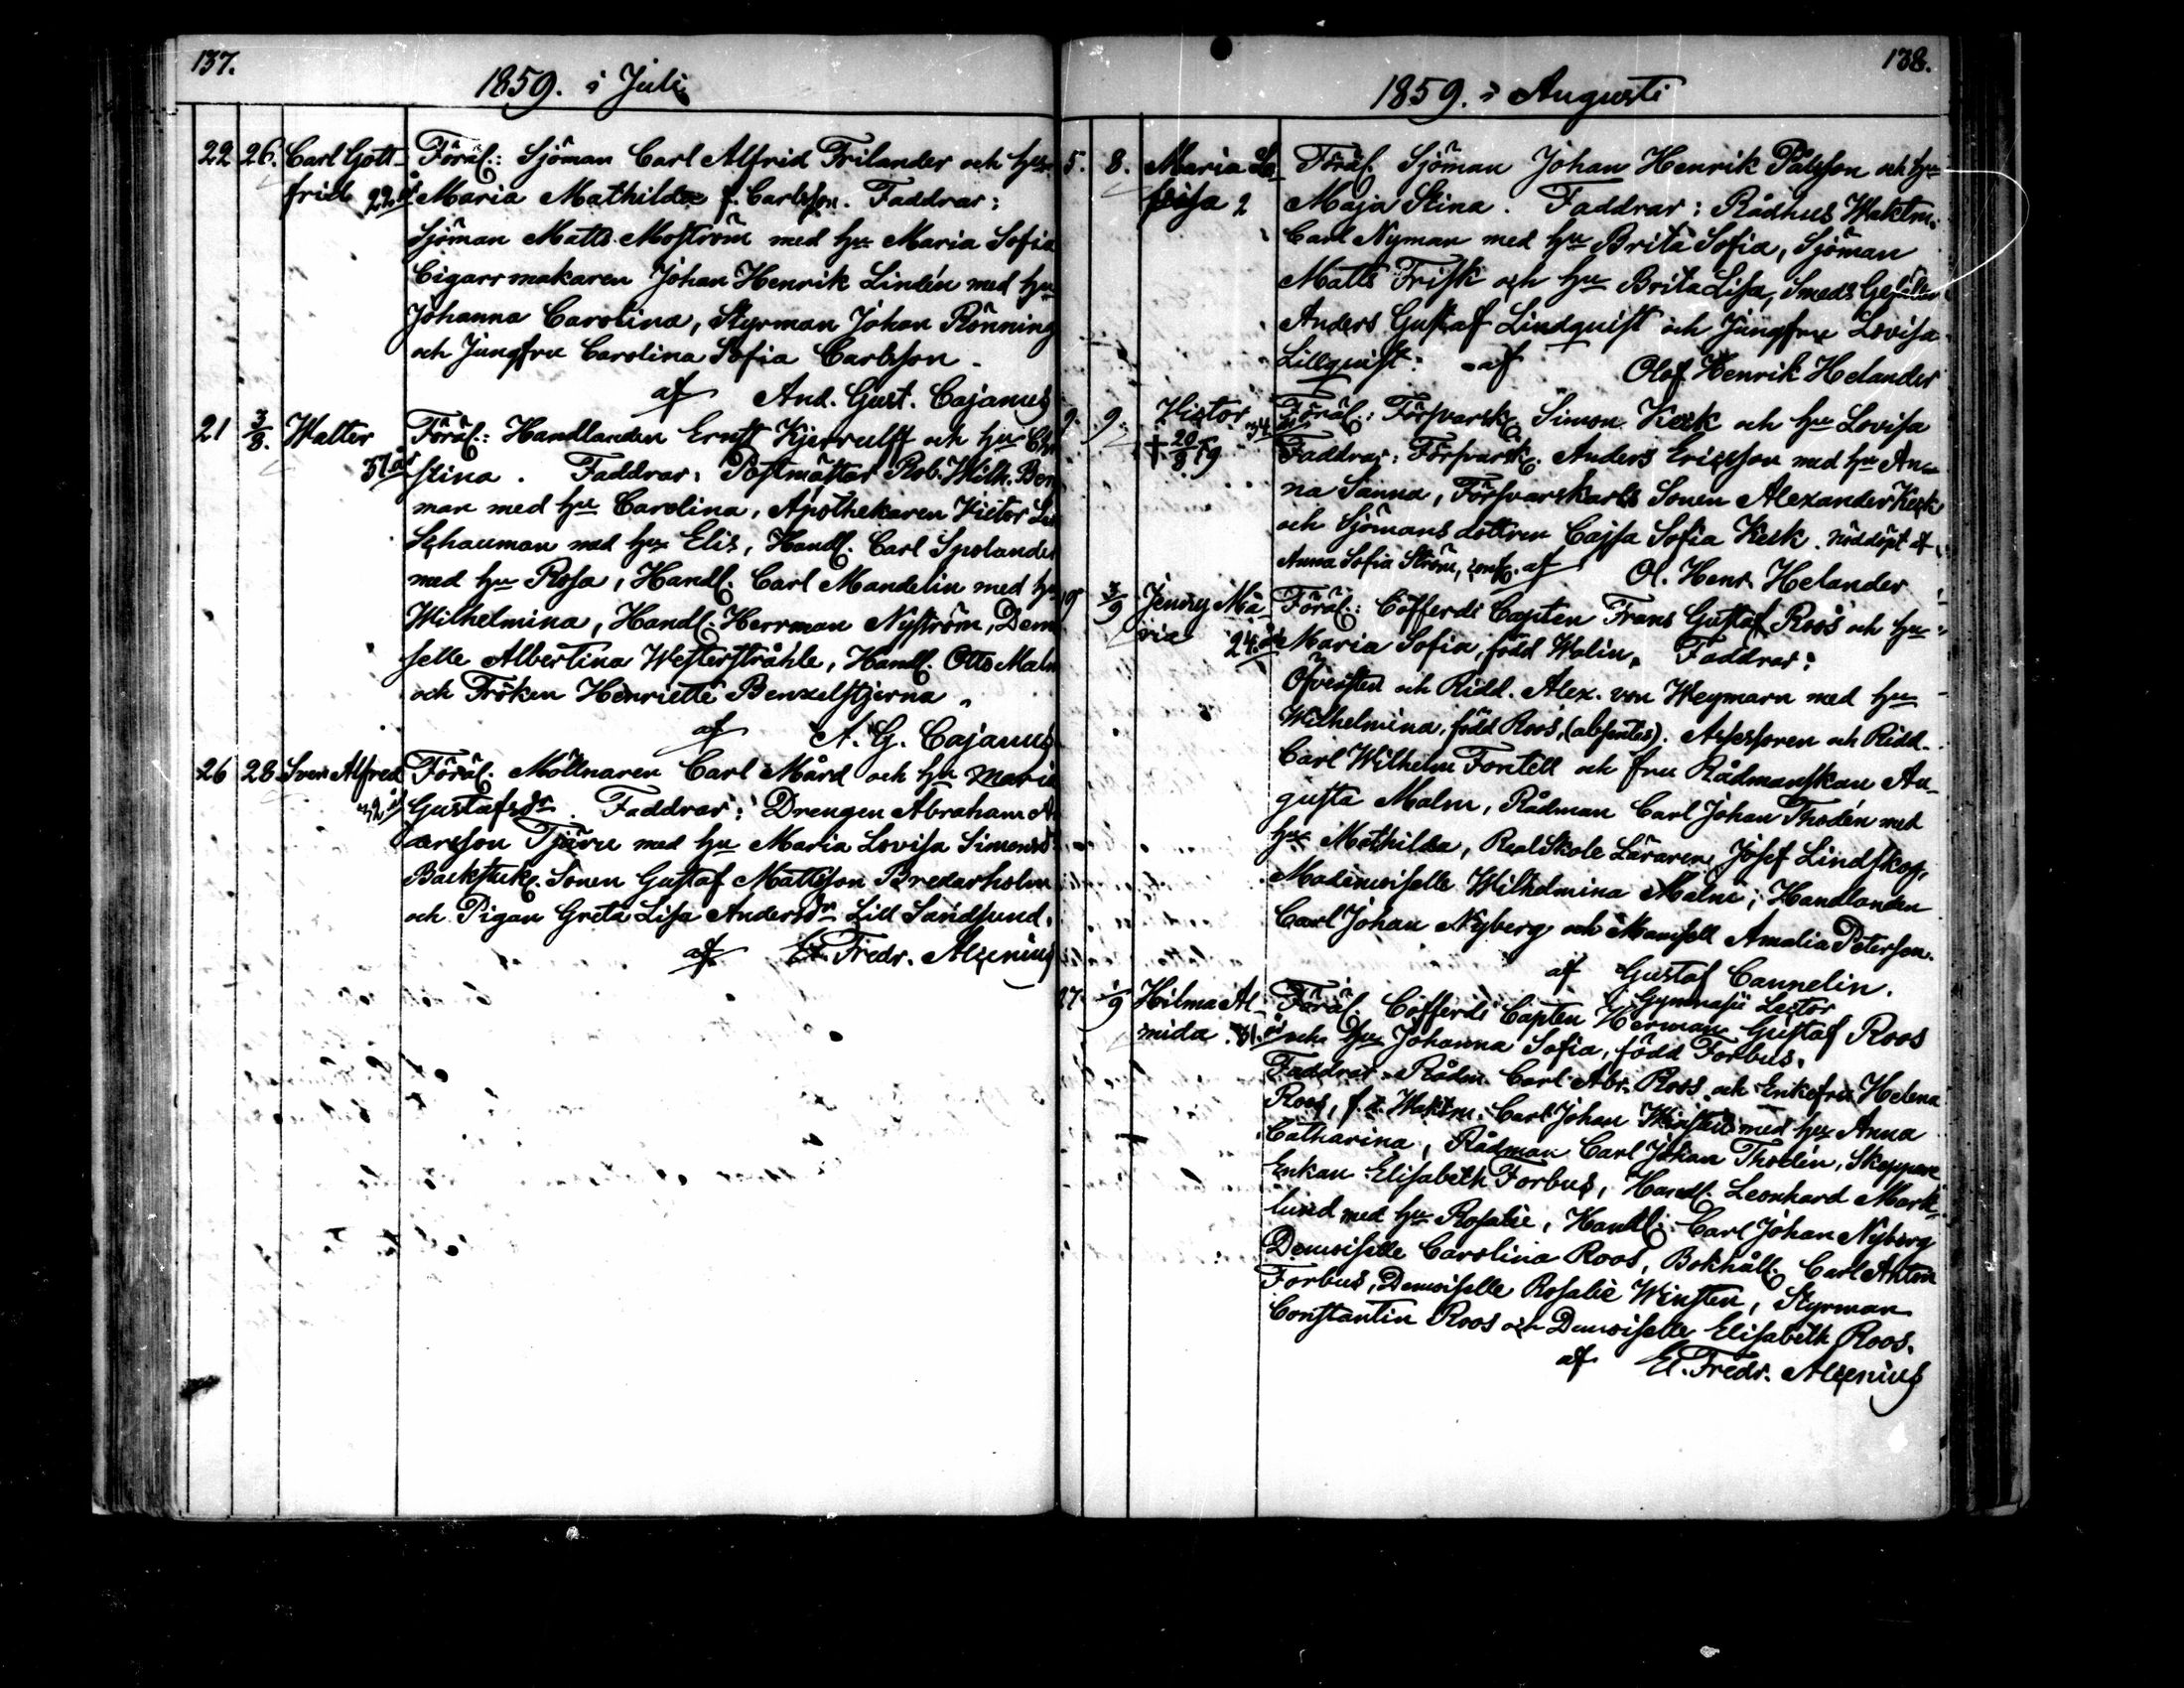 137.
1859. i Juli
22 26. Carl Gott- Föräl.: Sjöman Carl Alfrid Frilander och hu
frid 22 år Maria Mathilda f. Carlsson. Faddrar:
Sjöman Matts Moström med hu Maria Sofia
Cigarrmakaren Johan Henrik Lindén med hu
Johanna Carolina, Styrman Johan Rönning
och Jungfru Carolina Sofia Carlsson.
af And. Gust. Cajanus
21 3/8. Walter Föräl.: Handlanden Ernst Kjerrulff och hu Chri
37 år stina. Faddrar: Postmästar Rob. Wilh. Bon
man med hu Carolina, Apothekaren Victor
Schauman med hu Elis, Handl. Carl Spolander
med hu Rosa, Handl. Carl Mandelin med hu
Wilhelmina, Handl. Herrman Nyström, Dem
selle Albertina Westerstråhle, Handl. Otto Malm
och Fröken Henriette Benzelstjerna.
af A. G. Cajanus
26 28 Sven Alfred Föräl. Möllnaren Carl Mård och hu Maria
32 år Gustafsdr. Faddrar: Drengen Abraham A
dersson Tjäru med hu Maria Lovisa Simonsdr
Backstuk. Sonen Gustaf Mattsson Bredarholm
och Pigan Greta Lisa Andersdr Lill Sandsund.
af El. Fredr. Alcenius
138.
1859. i Augusti
5. 8. Maria Lo- Föräl. Sjöman Johan Henrik Pålsson och hu
visa 2 Maja Stina. Faddrar: Rådhus Waktm.
Carl Nyman med hu Brita Sofia, Sjöman
Matts Frisk och hu Brita Lisa, Smeds Gesällen
Anders Gustaf Lindquist och Jungfru Lovisa
Lillquist. af Olof Henrik Helander
9. 9. Victor 34 Föräl.: Försvarsk. Simon Kesk och hu Lovisa
† 20/8 59 Faddrar: Försvarsk. Anders Ericsson med hu An-
na Sanna, Försvarskarls Sonen Alexander Kesk
och Sjömans dottren Cajsa Sofia Kesk. nöddöpt af
Anna Sofia Ström, conf. af Ol. Henr. Helander
19 3/9 Jenny Ma Föräl.: Cofferdi Capten Frans Gustaf Roos och hu
ria 24. år Maria Sofia, född Walin. Faddrar:
Öfversten och Ridd. Alex. von Weymarn med hu
Wilhelmina, född Roos, (absentes). Assessoren och Ridd.
Carl Wilhelm Fontell och fru Rådmanskan Au-
gusta Malm, Rådman Carl Johan Thodén med
hu Mathilda, RealSkole Läraren Josef Lindskog,
Mademoiselle Wilhelmina Malm, Handlanden
Carl Johan Nyberg och Mamsell Amalia Peterson.
af Gustaf Cannelin.
Gymnasii Lector
27 1/9 Hilma Al- Föräl. Cofferdi Capten Herman Gustaf Roos
mida 31. år och hu Johanna Sofia, född Forbus.
Faddrar: Rådm. Carl Abr. Roos och Enkefru Helena
Roos, f.d. Waktm. Carl Johan Winsten med hu Anna
Catharina, Rådman Carl Johan Thodén, Skeppare
Enkan Elisabeth Forbus, Handl. Leonhard Mark-
lund med hu Rosalie, Handl. Carl Johan Nyberg
Demoiselle Carolina Roos, Bokhåll. Carl Anton
Forbus, Demoiselle Rosalie Winsten, Styrman
Constantin Roos och Demoiselle Elisabeth Roos.
af El. Fredr. Alcenius